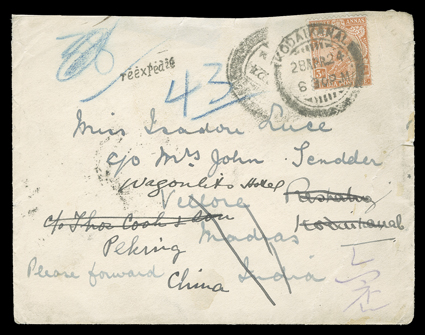 38
réexpédié
KODAIKANAL
28 MA 24
ANNAS
43
Miss Isadore Luce
c/o Mrs John Scudder
Wagonlits Hotel
Vellore
c/o Thos Cook & Son
Kodaikanal
Peking
Madras
Please forward
China
India